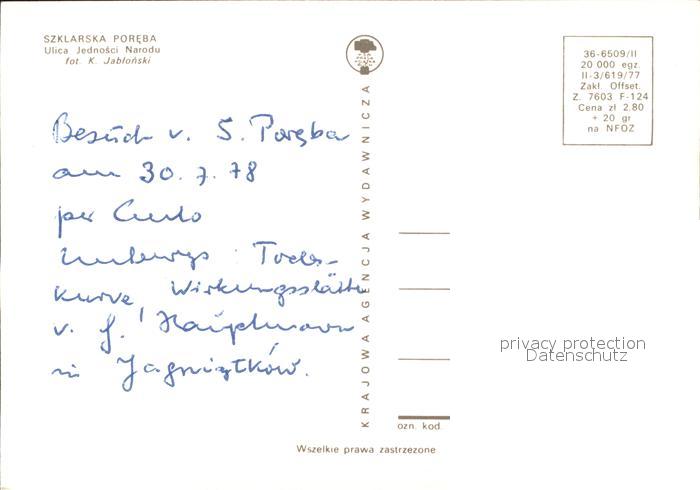 SZKLARSKA PORĘBA
Ulica Jedności Narodu
fot. K. Jabłoński
36-6509/II
20 000 egz.
II-3/619/77
Zakł. Offset.
Z. 7603 F-124
Cena zł 2.80
+ 20 gr
na NFOZ
KRAJOWA AGENCJA WYDAWNICZA
Besuch v. S. Poręba
am 30.7.78
per Auto
unterwegs: Todes-
kurve, Wirkungsstätte
v. G. Hauptmann
in Jagniątków.
privacy protection
Datenschutz
ozn. kod.
Wszelkie prawa zastrzeżone